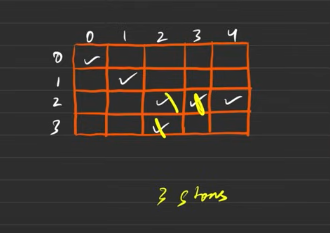 0 1 2 3 4
0
1
2
3
3 stons